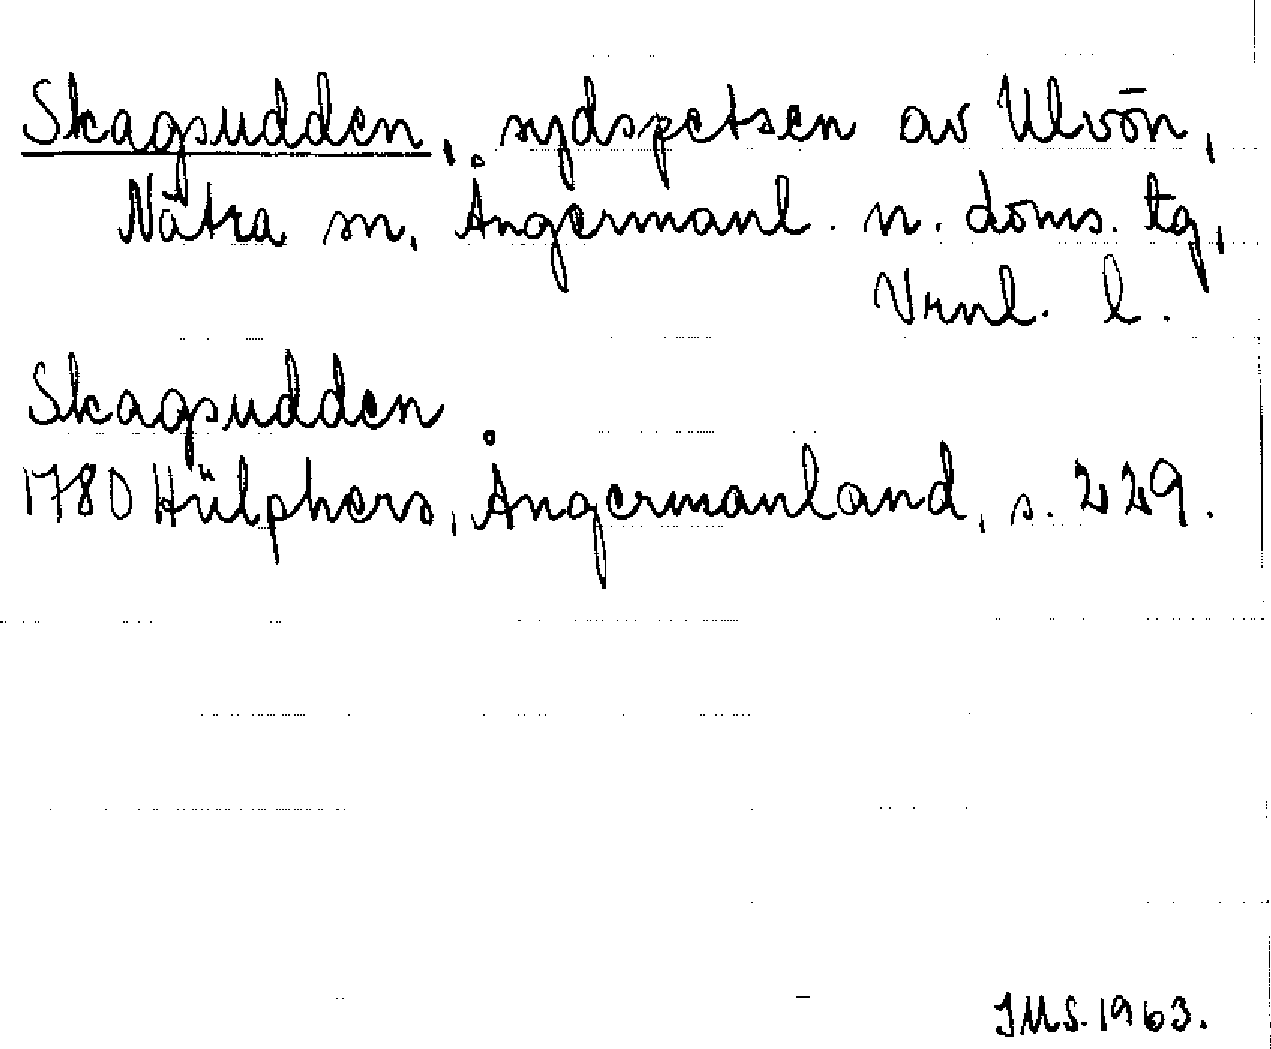 Skagsudden, sydspetsen av Ulvön,
Nätra sn, Ångermanl. n. doms. tg,
Vrnl. l.
Skagsudden
1780 Hülphers, Ångermanland, s. 229.
JMS. 1963.